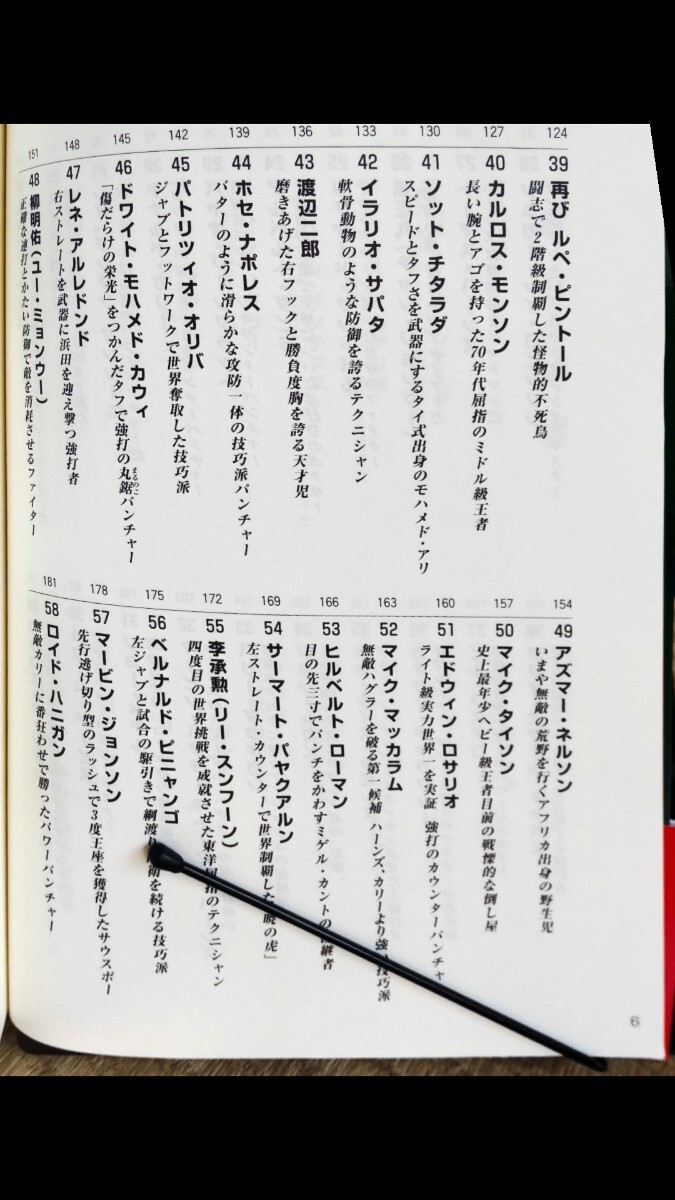 39 再び ルペ・ピントール
闘志で2階級制覇した怪物的不死鳥
124
40 カルロス・モンソン
長い腕とアゴを持った70年代屈指のミドル級王者
127
41 ソット・チタラダ
スピードとタフさを武器にするタイ式出身のモハメド・アリ
130
42 イラリオ・サパタ
軟骨動物のような防御を誇るテクニシャン
133
43 渡辺二郎
磨きあげた右フックと勝負度胸を誇る天才児
136
44 ホセ・ナポレス
バターのように滑らかな攻防一体の技巧派パンチャー
139
45 パトリツィオ・オリバ
ジャブとフットワークで世界奪取した技巧派
142
46 ドワイト・モハメド・カウィ
「傷だらけの栄光」をつかんだタフで強打の丸鋸パンチャー
まるのこ
145
47 レネ・アルレドンド
右ストレートを武器に浜田を迎え撃つ強打者
148
48 柳明佑(ユー・ミョンウー)
正確な連打とかたい防御で敵を消耗させるファイター
151
49 アズマー・ネルソン
いまや無敵の荒野を行くアフリカ出身の野生児
154
50 マイク・タイソン
史上最年少ヘビー級王者目前の戦慄的な倒し屋
157
51 エドウィン・ロサリオ
ライト級実力世界一を実証 強打のカウンターパンチャ
160
52 マイク・マッカラム
無敵ハグラーを破る第一候補 ハーンズ、カリーより強い技巧派
163
53 ヒルベルト・ローマン
目の先三寸でパンチをかわすミゲル・カントの 継者
166
54 サーマート・パヤクアルン
左ストレート・カウンターで世界制覇した 暁の虎」
169
55 李承勲(リー・スンフーン)
四度目の世界挑戦を成就させた東洋屈指のテクニシャン
172
56 ベルナルド・ピニャンゴ
左ジャブと試合の駆引きで綱渡り 衛を続ける技巧派
175
57 マービン・ジョンソン
先行逃げ切り型のラッシュで3度王座を獲得したサウスポー
178
58 ロイド・ハニガン
無敵カリーに番狂わせで勝ったパワーパンチャー
181
6